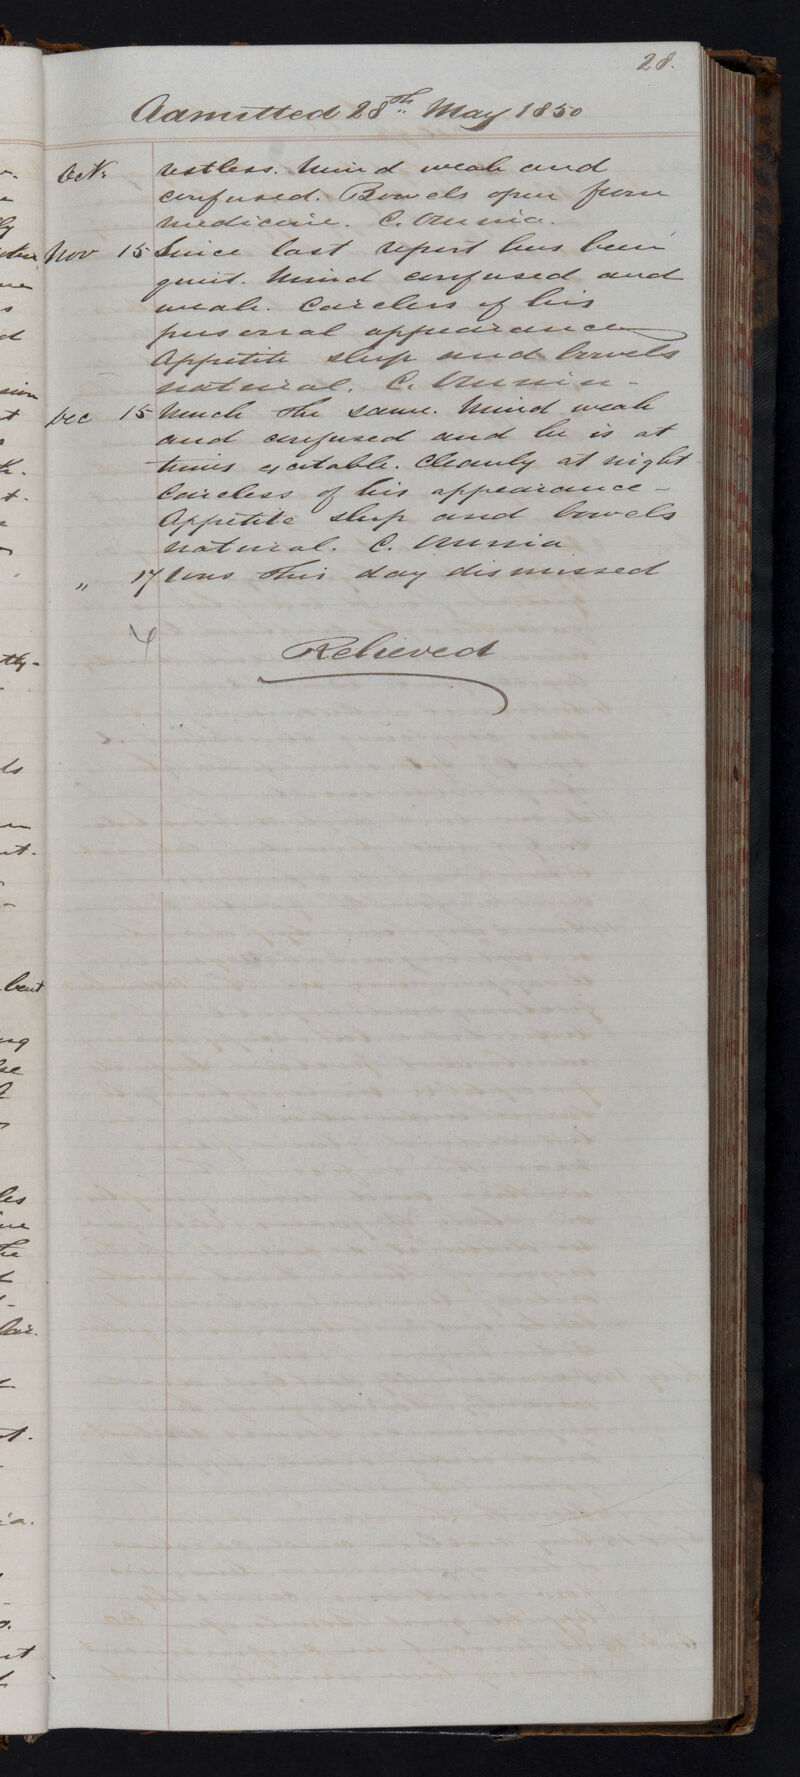 28.
Admitted 28th May 1850
Octr. restless. Mind weak and
confused. Bowels open from
medicine. C. Amnia.
Nov 15 Since last report has been
quiet. Mind confused and
weak. Careless of his
personal appearance
Appetite sleep and bowels
natural. C. Amnia -
Dec 15 Much the same. Mind weak
and confused and he is at
times excitable. Cleanly at night -
Careless of his appearance -
Appetite sleep and bowels
natural. C. Amnia
" 17 Was this day dismissed
Relieved